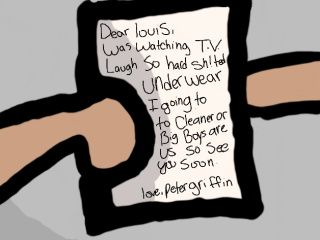 Dear louis,
Was watching T.V
Laugh So hard sh!ted
Underwear
I going to
to Cleaner or
Big Boys are
us so See
you Soon.
love, Peter griffin